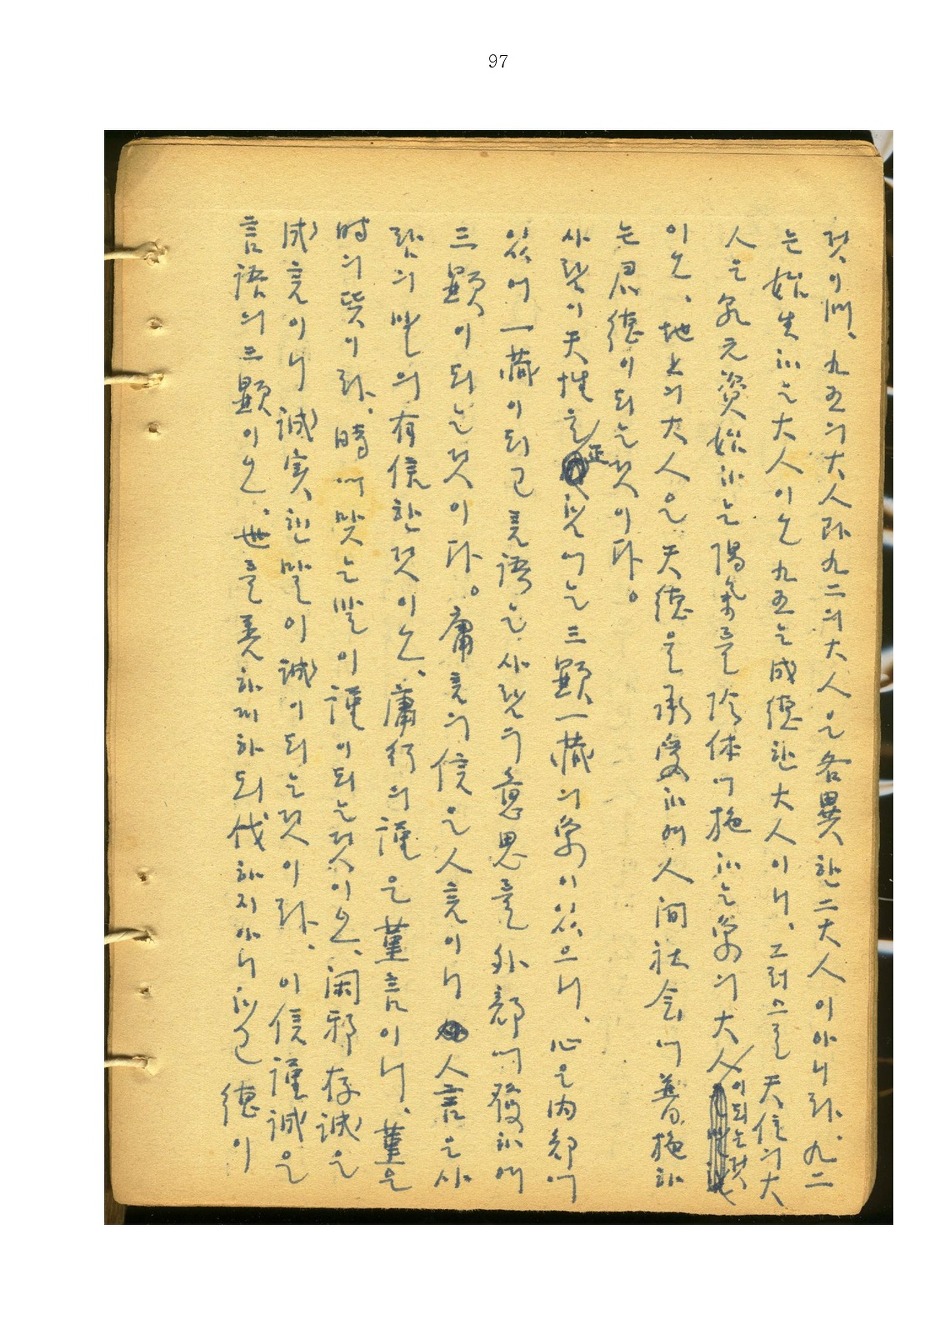 97
것이며、九五의大人과九二의大人은各異한二大人이아니라、九二
는始生하는大人이오九五는成德한大人이니、그러므로天位의大
人은乾元資始하는陽氣를陰体에施하는象의大人이되는것
이오、地上의大人은天德을承受하여人間社会에普施하
는君德이되는것이다。
사람이天性을正함에는三顯一藏의象이있으니、心은内部에
있어一藏이되고言語는사람의意思를外部에發하여
三顯이되는것이다。庸言의信은人言이니人言은사
람의말의有信한것이오、庸行의謹은菫言이니、菫은
時의뜻이라、時에맞는말이謹이되는것이오、閑邪存誠은
成言이니誠実한말이誠이되는것이라、이信謹誠은
言語의三顯이오、世를善하게하되伐하지아니하고德이